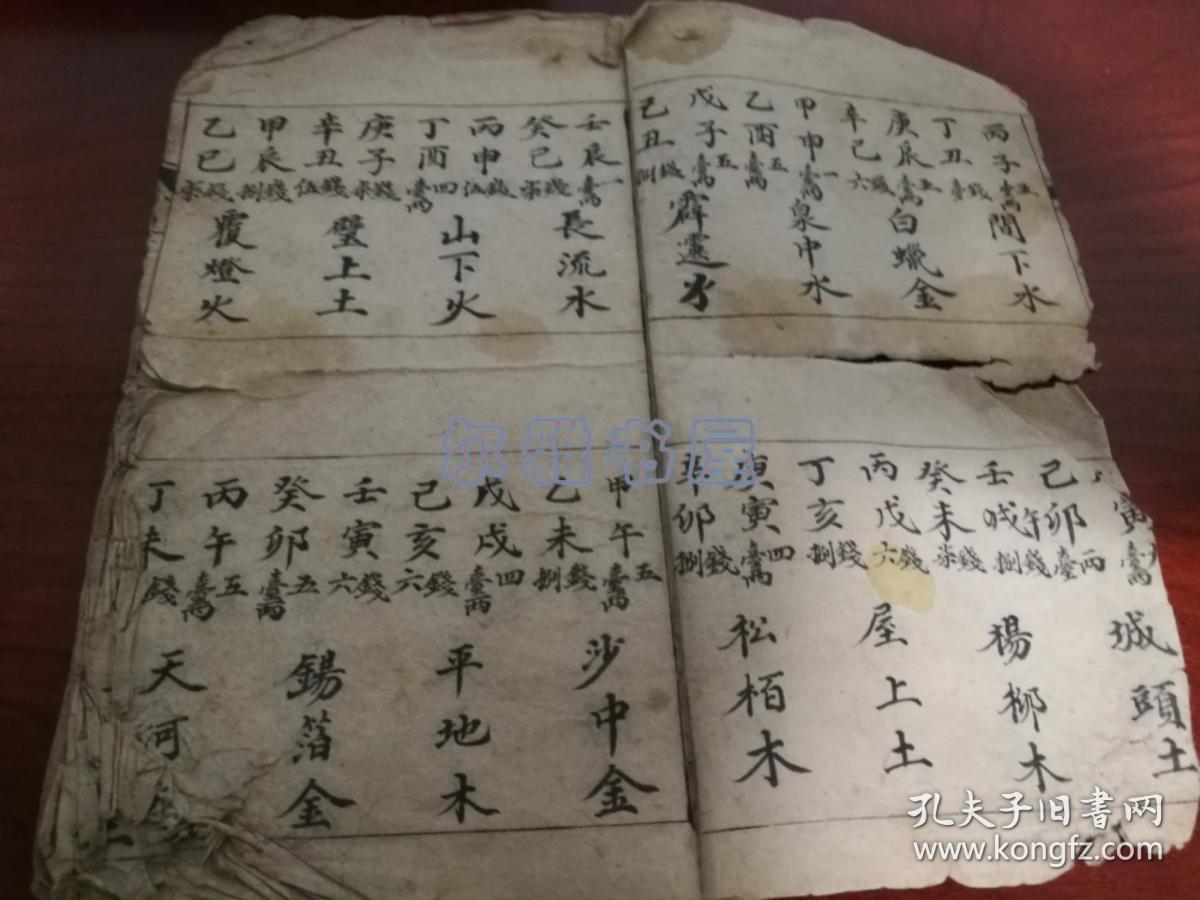 丙子五臺两間下水
丁丑臺錢
庚辰臺两五白蠟金
辛巳六錢
甲申臺两一泉中水
乙酉臺两五
戊子臺两五霹靂火
己丑捌錢
壬辰臺两一長流水
癸巳柒錢
丙申伍錢山下火
丁酉臺两四
庚子柒錢壁上土
辛丑伍錢
甲辰捌錢覆燈火
乙巳柒錢
寅臺两城頭土
己卯臺两
壬午捌錢楊柳木
癸未柒錢
丙戌六錢屋上土
丁亥捌錢
庚寅臺两四松栢木
辛卯捌錢
甲午臺两五沙中金
乙未捌錢
戊戌臺两四平地木
己亥六錢
壬寅六錢錫箔金
癸卯臺两五
丙午臺两五天河
丁未錢
尔雅书屋
孔夫子旧书网
www.kongfz.com